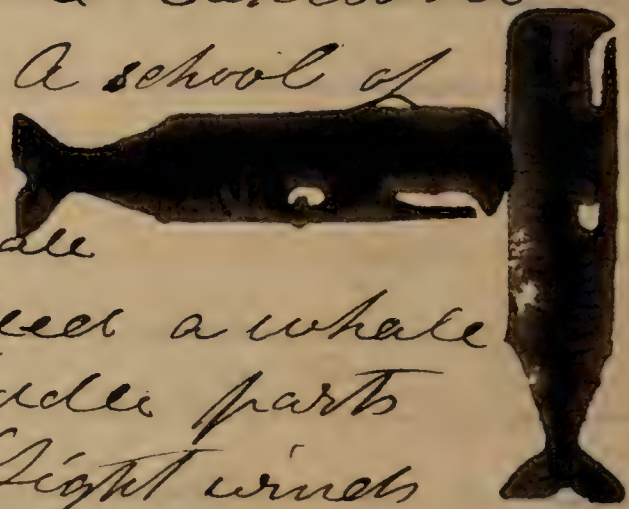 A school of
ale
a whale
ddle parts
light winds